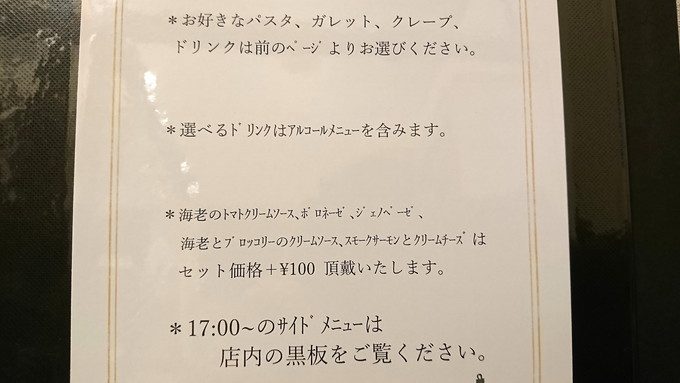 ＊お好きなパスタ、ガレット、クレープ、
ドリンクは前のﾍﾟｰｼﾞよりお選びください。
＊選べるﾄﾞﾘﾝｸはｱﾙｺｰﾙﾒﾆｭｰを含みます。
＊海老のﾄﾏﾄｸﾘｰﾑｿｰｽ、ﾎﾞﾛﾈｰｾﾞ、ｼﾞｪﾉﾍﾞｰｾﾞ、
海老とﾌﾞﾛｯｺﾘｰのｸﾘｰﾑｿｰｽ、ｽﾓｰｸｻｰﾓﾝとｸﾘｰﾑﾁｰｽﾞは
セット価格＋¥100 頂戴いたします。
＊17:00~のｻｲﾄﾞﾒﾆｭｰは
店内の黒板をご覧ください。